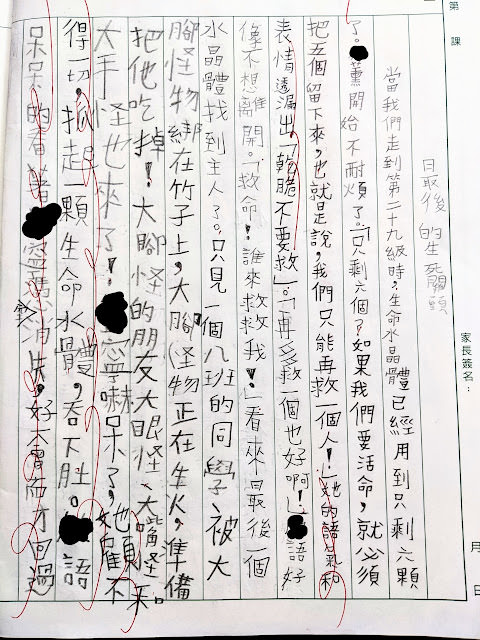 第 課
家長簽名：
月 日
最後的生死關頭
當我們走到第二十九級時，生命水晶體已經用到只剩六顆
了。薰開始不耐煩了。「只剩六個？如果我們要活命，就必須
把五個留下來，也就是說，我們只能再救一個人！」她的語氣和
表情透漏出「乾脆不要救」。「再多救一個也好啊！」語好
像不想離開。「救命！誰來救救我！」看來最後一個
水晶體找到主人了。只見一個八班的同學被大
腳怪物綁在竹子上，大腳怪物正在生火，準備
把他吃掉！大腳怪的朋友大眼怪、大嘴怪、
大手怪也來了！寧嚇呆了，她顧不
得一切，抓起一顆生命水體，吞下肚。語
呆呆的看著寧消失，好不容易才回過